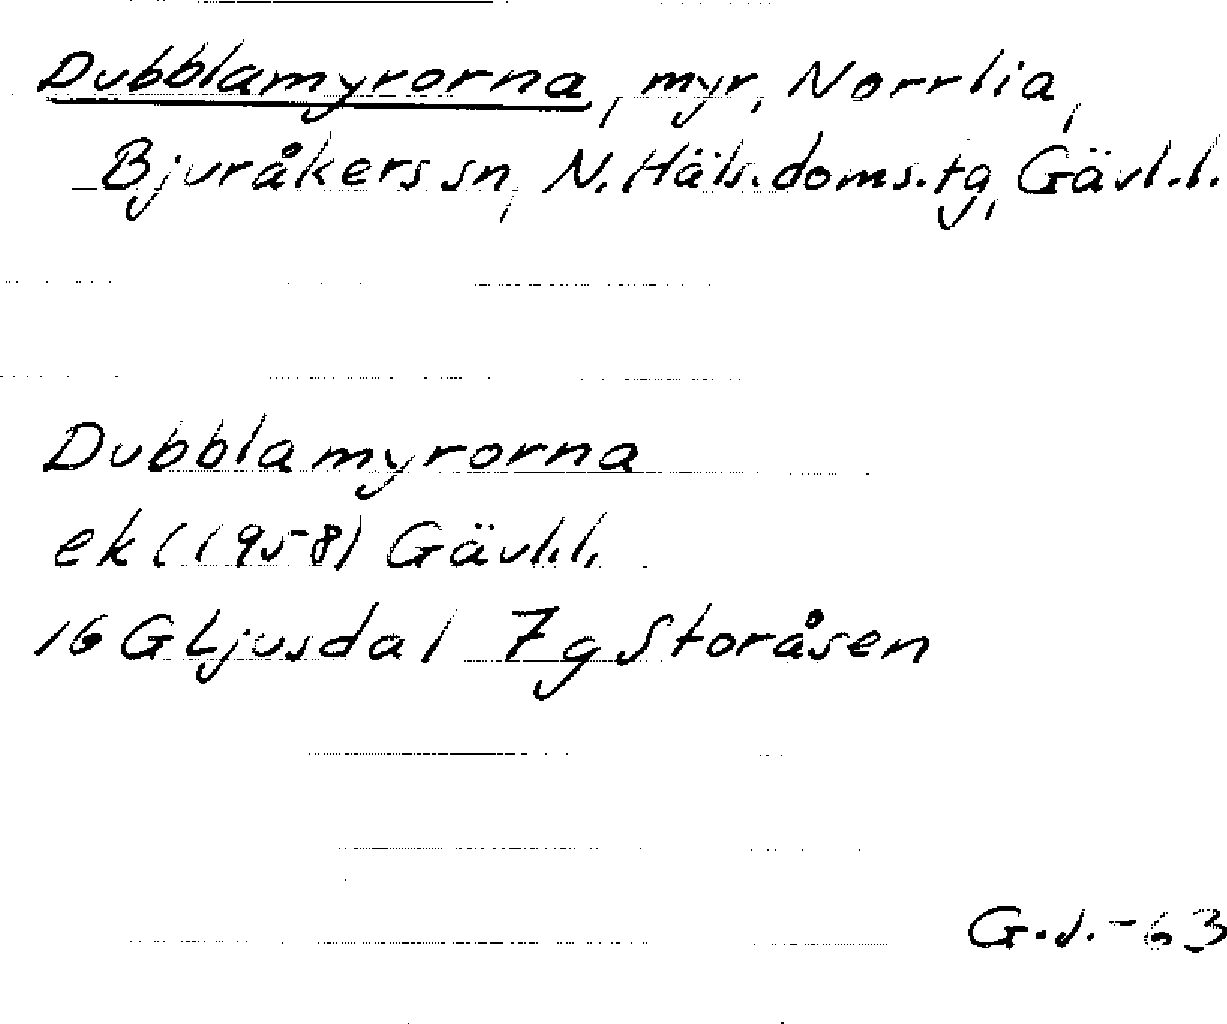 Dubblamyrorna, myr, Norrlia,
Bjuråkers sn, N. Häls. doms. tg, Gävl. l.
Dubblamyrorna
ek (1958) Gävl. l.
16 G Ljusdal 7g Storåsen
G.J. -63